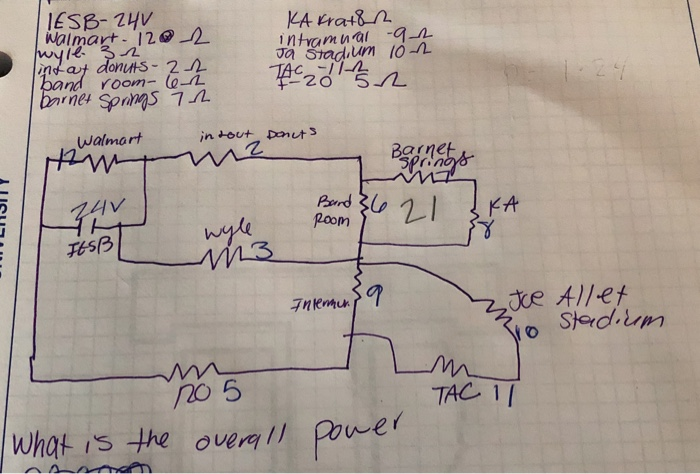 IESB- 24V
Walmart - 12 Ω
wyle 3 Ω
donuts - 2 Ω
band room- 6 Ω
barnet springs 7 Ω
KA Krat 8 Ω
intramural -9 Ω
Ja Stadium 10 Ω
TAC -11 Ω
I-20 5 Ω
Walmart
12
in tout Donuts
2
Barnet
springs
7
24V
IESB
wyle
3
Band
Room
6
21
KA
8
9
Joe Allet
Stadium
10
5
TAC 11
What is the overall power